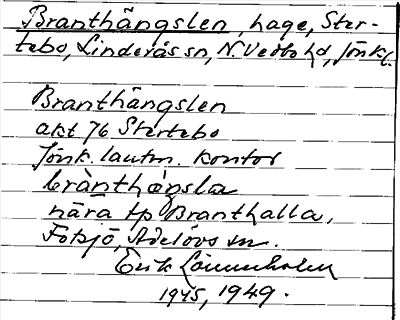 Branthängslen, hage, Ster-
tebo, Linderås sn, N. Vedbo hd, Jönk l.
Branthängslen
akt 76 Stertebo
Jönk. lantm. kontor
brànthǫ̀ŋsla
nära tp Branthalla,
Adelövs sn.
Erik Lönnerholm
1945, 1949.